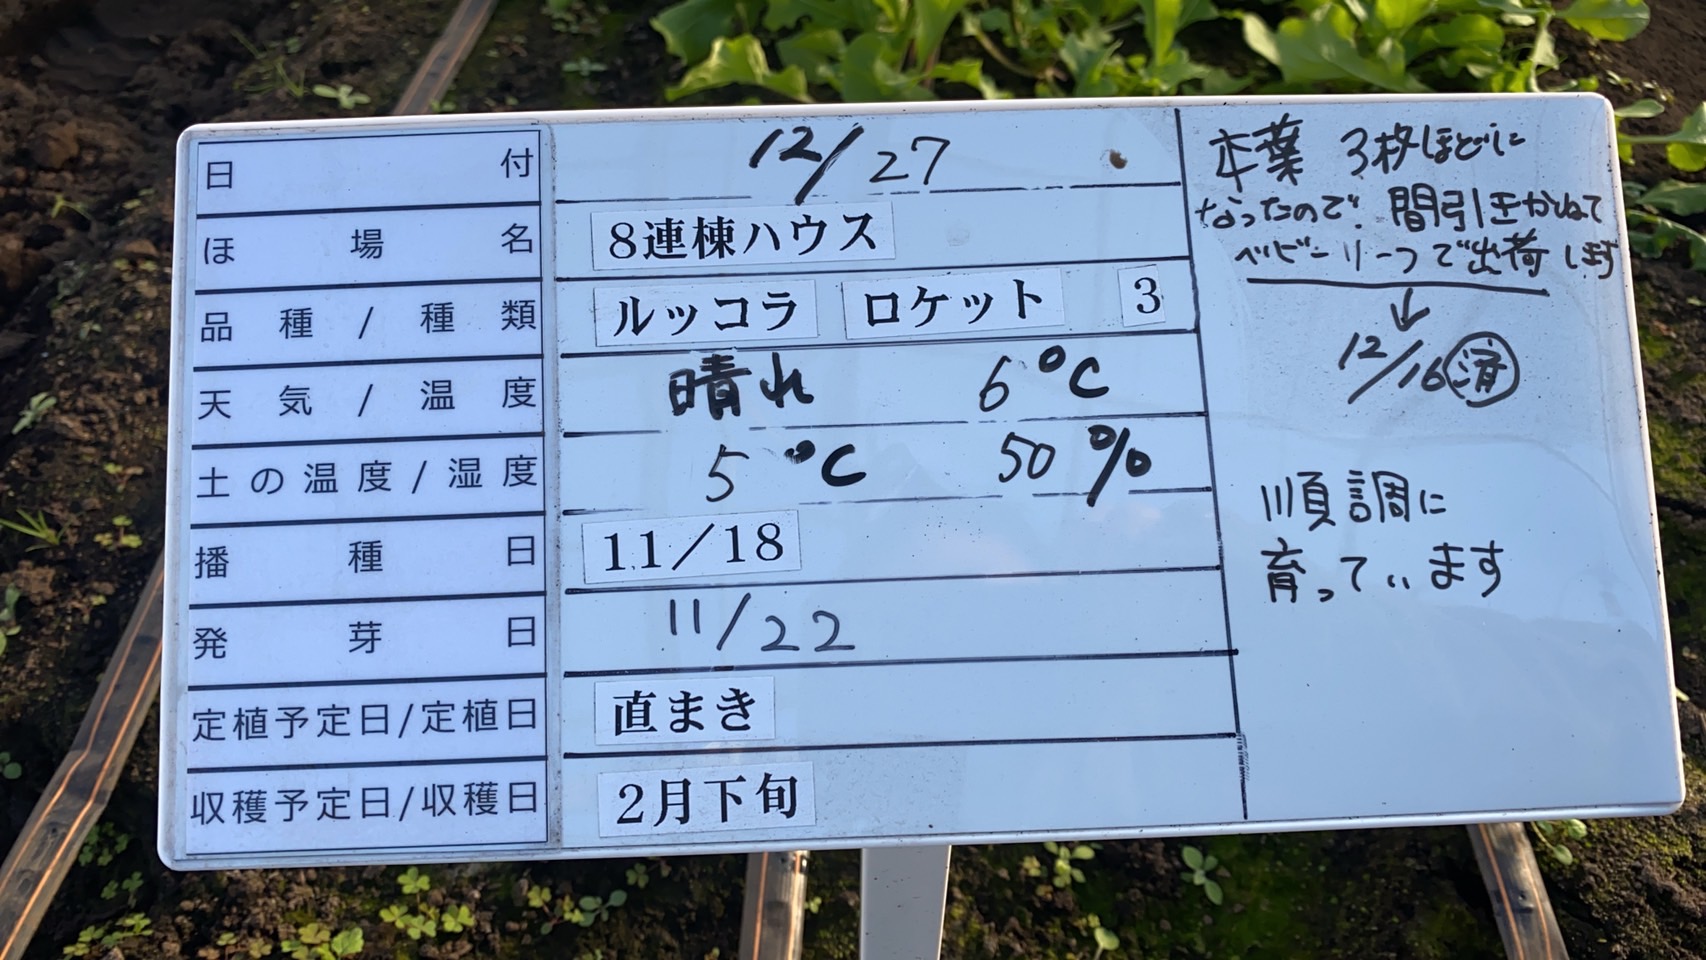 日付 12/27
ほ場名 8連棟ハウス
品種/種類 ルッコラ ロケット 3
天気/温度 晴れ 6℃
土の温度/湿度 5℃ 50%
播種日 11/18
発芽日 11/22
定植予定日/定植日 直まき
収穫予定日/収穫日 2月下旬
本葉 3枚ほどに
なったので、間引きをかねて
ベビーリーフで出荷します
↓
12/16 済
順調に
育っています